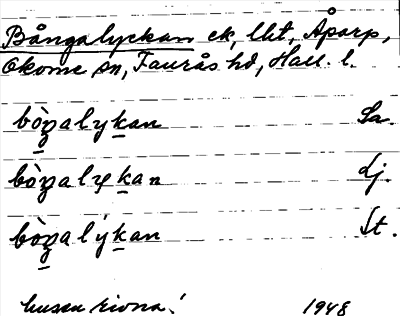 Bångalyckan ek, lht, Åparp,
Okome sn, Faurås hd, Hall. l.
bòŋalykan Sa.
bòŋalykan Lj.
bòŋalýkan St.
husen rivna! 1948